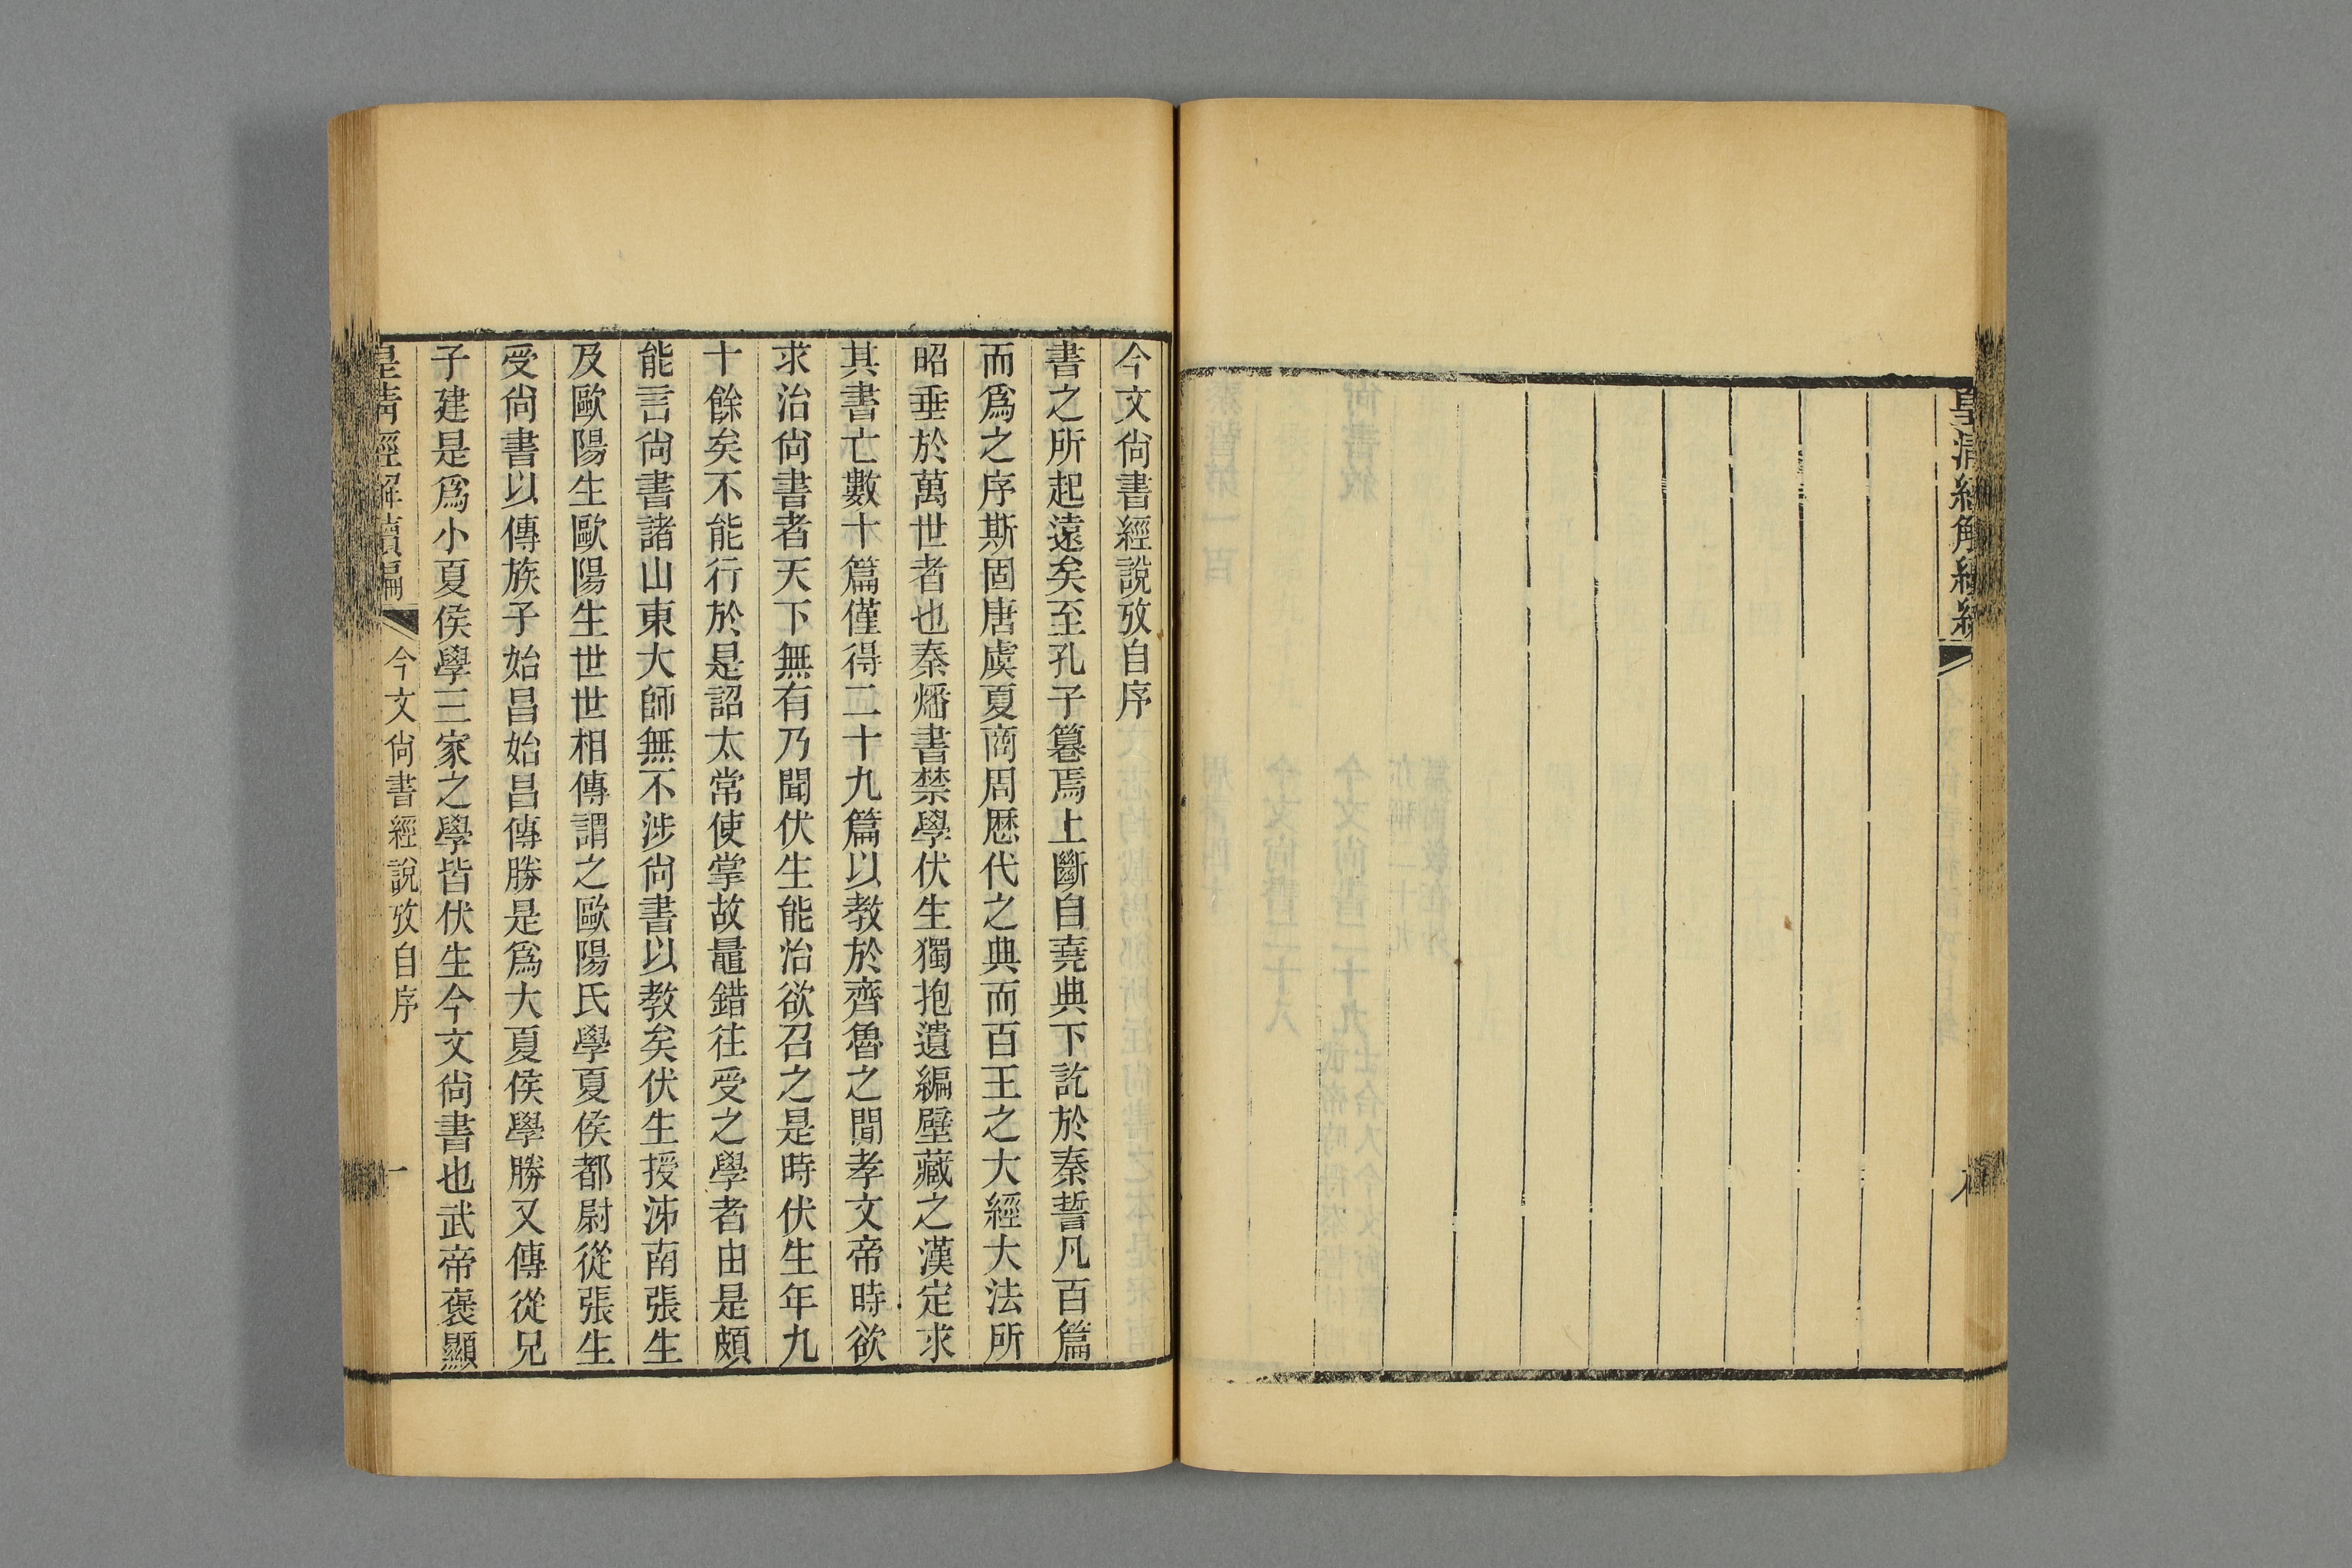 皇清經解續編
八
今文尙書經說攷自序
書之所起遠矣至孔子篹焉上斷自堯典下訖於秦誓凡百篇
而爲之序斯固唐虞夏商周歷代之典而百王之大經大法所
昭垂於萬世者也秦燔書禁學伏生獨抱遺編壁藏之漢定求
其書亡數十篇僅得二十九篇以教於齊魯之閒孝文帝時欲
求治尙書者天下無有乃聞伏生能治欲召之是時伏生年九
十餘矣不能行於是詔太常使掌故鼂錯往受之學者由是頗
能言尙書諸山東大師無不涉尙書以教矣伏生授泲南張生
及歐陽生歐陽生世世相傳謂之歐陽氏學夏侯都尉從張生
受尙書以傳族子始昌始昌傳勝是爲大夏侯學勝又傳從兄
子建是爲小夏侯學三家之學皆伏生今文尙書也武帝褒顯
皇清經解續編
今文尙書經說攷自序
一